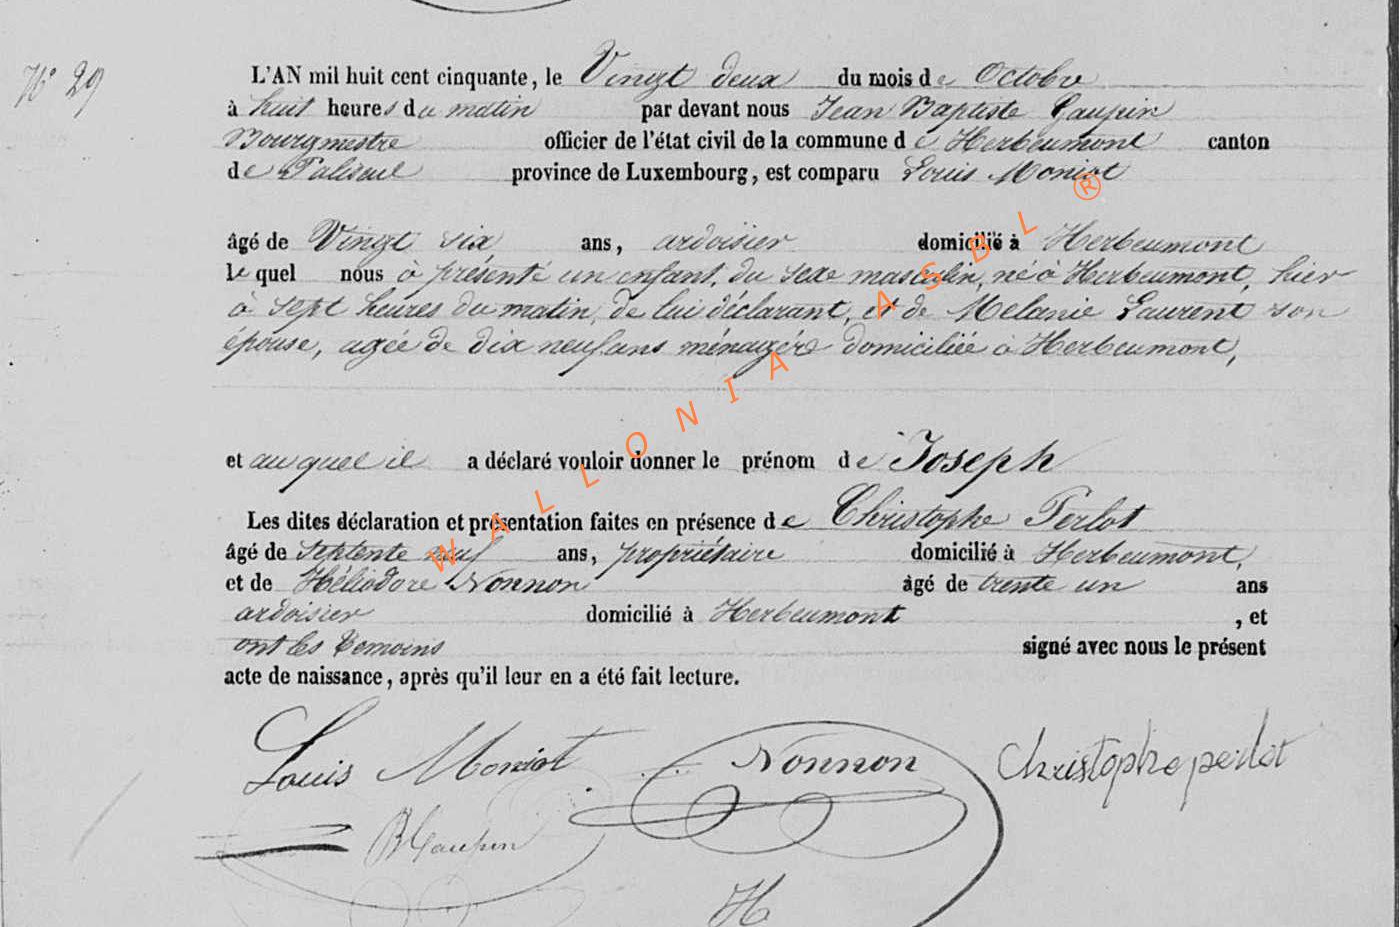 N° 29
L'AN mil huit cent cinquante, le Vingt deux du mois de Octobre
à huit heures du matin par devant nous Jean Baptiste Gaupin
Bourgmestre officier de l'état civil de la commune de Herbeumont canton
de Paliseul province de Luxembourg, est comparu Louis Moniot
âgé de Vingt six ans, ardoisier domicilié à Herbeumont
le quel nous à présenté un enfant, du sexe masculin, né à Herbeumont, hier
à sept heures du matin, de lui déclarant, et de Melanie Laurent son
épouse, agée de dix neuf ans ménagère domiciliée à Herbeumont,
et au quel il a déclaré vouloir donner le prénom de Joseph
Les dites déclaration et présentation faites en présence de Christophe Perlot
âgé de septente neuf ans, propriétaire domicilié à Herbeumont,
et de Héliodore Nonnon âgé de trente un ans
ardoisier domicilié à Herbeumont, et
ont les temoins signé avec nous le présent
acte de naissance, après qu'il leur en a été fait lecture.
Louis Moniot Nonnon Christophe perlot
JBGaupin
H
WALLONIA ASBL ®